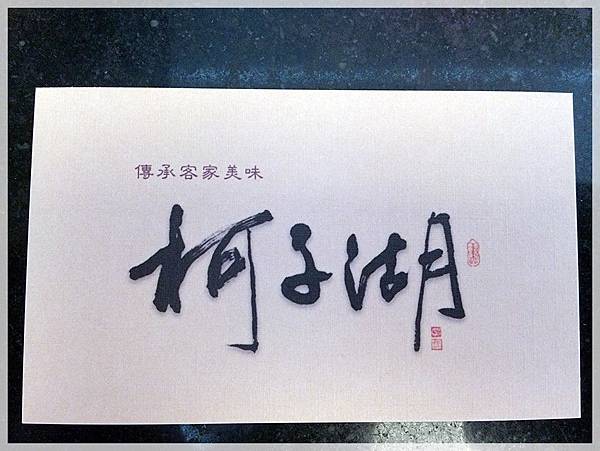 傳承客家美味
柯子湖